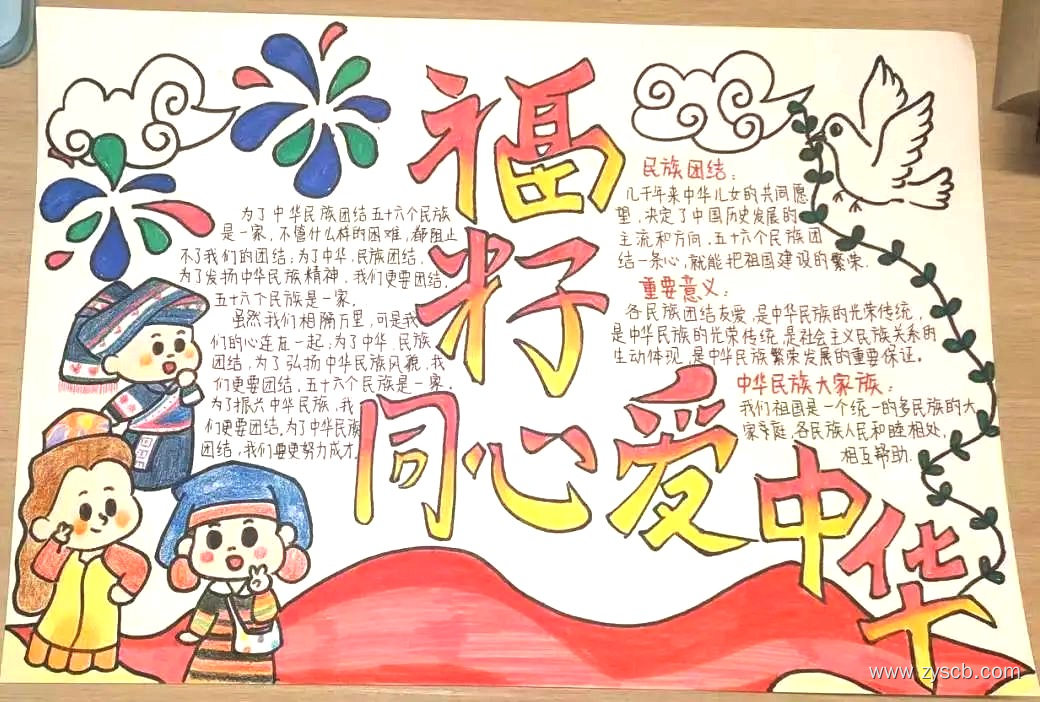 福
籽
同心爱
中华
为了中华民族团结五十六个民族
是一家，不管什么样的困难，都阻止
不了我们的团结；为了中华，民族团结，
为了发扬中华民族精神，我们更要团结，
五十六个民族是一家。
虽然我们相隔万里，可是我
们的心连在一起；为了中华，民族
团结，为了弘扬中华民族风貌，我
们更要团结，五十六个民族是一家。
为了振兴中华民族，我
们更要团结，为了中华民族
团结，我们要更努力成才。
民族团结：
几千年来中华儿女的共同愿
望，决定了中国历史发展的
主流和方向，五十六个民族团
结一条心，就能把祖国建设的繁荣.
重要意义：
各民族团结友爱，是中华民族的光荣传统，
是中华民族的光荣传统，是社会主义民族关系的
生动体现，是中华民族繁荣发展的重要保证。
中华民族大家族：
我们祖国是一个统一的多民族的大
家庭，各民族人民和睦相处，
相互帮助.
www.zyscb.com